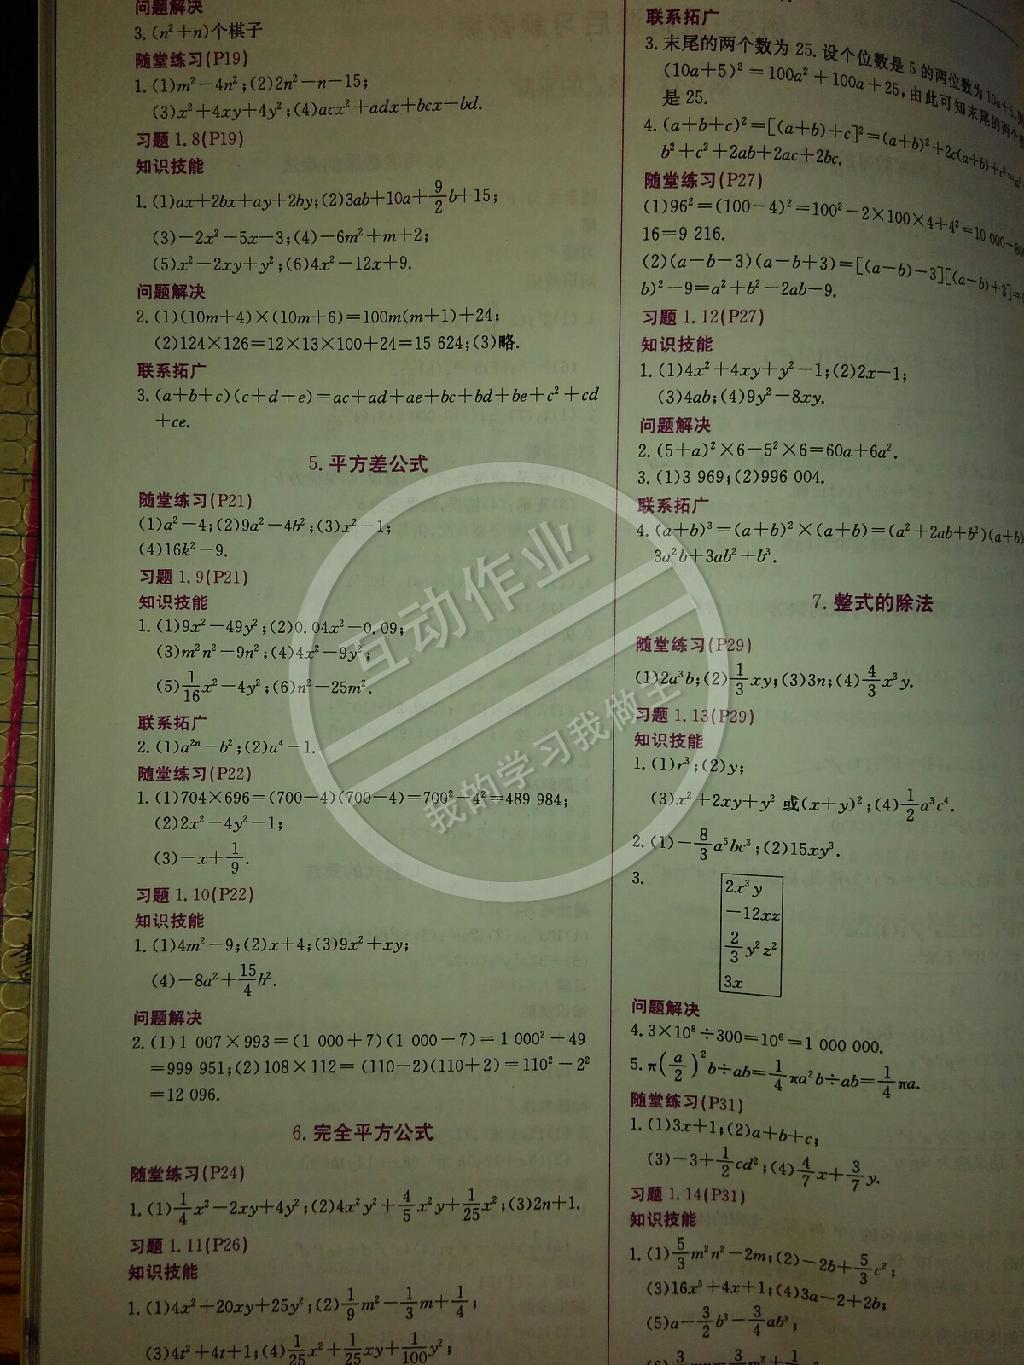 问题解决
3. (n²+n)个棋子
随堂练习(P19)
1. (1)m²-4n²;(2)2n²-n-15;
(3)x²+4xy+4y²;(4)acx²+adx+bcx+bd.
习题 1.8(P19)
知识技能
1. (1)ax+2bx+ay+2by;(2)3ab+10a+9/2b+15;
(3)-2x²-5x-3;(4)-6m²+m+2;
(5)x²-2xy+y²;(6)4x²-12x+9.
问题解决
2. (1)(10m+4)×(10m+6)=100m(m+1)+24;
(2)124×126=12×13×100+24=15 624;(3)略.
联系拓广
3. (a+b+c)(c+d-e)=ac+ad+ae+bc+bd+be+c²+cd
+ce.
5. 平方差公式
随堂练习(P21)
(1)a²-4;(2)9a²-4b²;(3)x²-1;
(4)16k²-9.
习题 1.9(P21)
知识技能
1. (1)9x²-49y²;(2)0.04x²-0.09;
(3)m²n²-9n²;(4)4x²-9y²;
(5)1/16x²-4y²;(6)n²-25m².
联系拓广
2. (1)a²ⁿ-b²;(2)a⁴-1.
随堂练习(P22)
1. (1)704×696=(700-4)(700-4)=700²-4²=489 984;
(2)2x²-4y²-1;
(3)-x+1/9.
习题 1.10(P22)
知识技能
1. (1)4m²-9;(2)x+4;(3)9x²+xy;
(4)-8a²+15/4b².
问题解决
2. (1)1 007×993=(1 000+7)(1 000-7)=1 000²-49
=999 951;(2)108×112=(110-2)(110+2)=110²-2²
=12 096.
6. 完全平方公式
随堂练习(P24)
1. (1)1/4x²-2xy+4y²;(2)4x²y²+4/5x²y+1/25x²;(3)2n+1.
习题 1.11(P26)
知识技能
1. (1)4x²+20xy+25y²;(2)1/9m²-1/3m+1/4;
(3)4t²+4t+1;(4)1/25x²+1/25xy+1/100y²;
联系拓广
3. 末尾的两个数为 25. 设个位数是 5 的两位数为 10a+5,
(10a+5)²=100a²+100a+25,由此可知末尾的两个
是 25.
4. (a+b+c)²=[(a+b)+c]²=(a+b)²+2c(a+b)+c²=
b²+c²+2ab+2ac+2bc.
随堂练习(P27)
(1)96²=(100-4)²=100²-2×100×4+4²=10 000-800
16=9 216.
(2)(a-b-3)(a-b+3)=[(a-b)-3][(a-b)+3]=
b)²-9=a²+b²-2ab-9.
习题 1.12(P27)
知识技能
1. (1)4x²+4xy+y²-1;(2)2x-1;
(3)4ab;(4)9y²-8xy.
问题解决
2. (5+a)²×6-5²×6=60a+6a².
3. (1)3 969;(2)996 004.
联系拓广
4. (a+b)³=(a+b)²×(a+b)=(a²+2ab+b²)(a+b)
3a²b+3ab²+b³.
7. 整式的除法
随堂练习(P29)
(1)2a³b;(2)1/3xy;(3)3n;(4)4/3x³y.
习题 1.13(P29)
知识技能
1. (1)r³;(2)y;
(3)x²+2xy+y² 或(x+y)²;(4)1/2a³c⁴.
2. (1)-8/3a⁵bc³;(2)15xy³.
3.
2x³y
-12xz
2/3y²z²
3x
问题解决
4. 3×10⁸÷300=10⁶=1 000 000.
5. π(a/2)²b÷ab=1/4πa²b÷ab=1/4πa.
随堂练习(P31)
1. (1)3x+1;(2)a+b+c;
(3)-3+1/2cd²;(4)4/7x+3/7y.
习题 1.14(P31)
知识技能
1. (1)5/3m²n²-2m;(2)-2b+5/3c²;
(3)16x³+4x+1;(4)3a-2+2b;
(5)a-3/2b³-3/4ab³;
互动作业
我的学习我做主